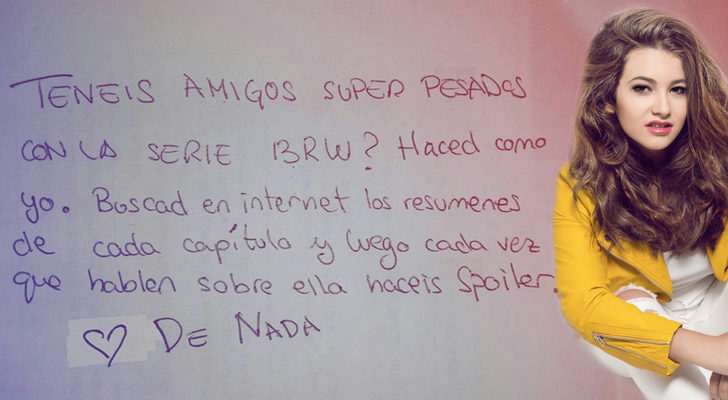 TENEIS AMIGOS SUPER PESADOS
CON LA SERIE BRW? Haced como
yo. Buscad en internet los resumenes
de cada capítulo y luego cada vez
que hablen sobre ella haceis Spoiler.
♡ DE NADA